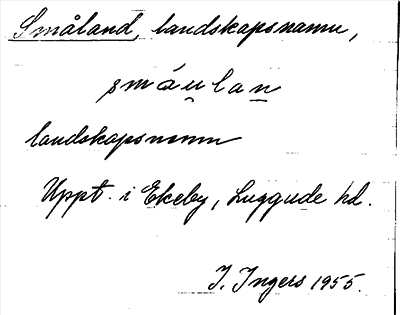 Småland, landskapsnamn,
småu̯lan̲
landskapsnamn
Uppt. i Ekeby, Luggude hd.
I. Ingers 1955.